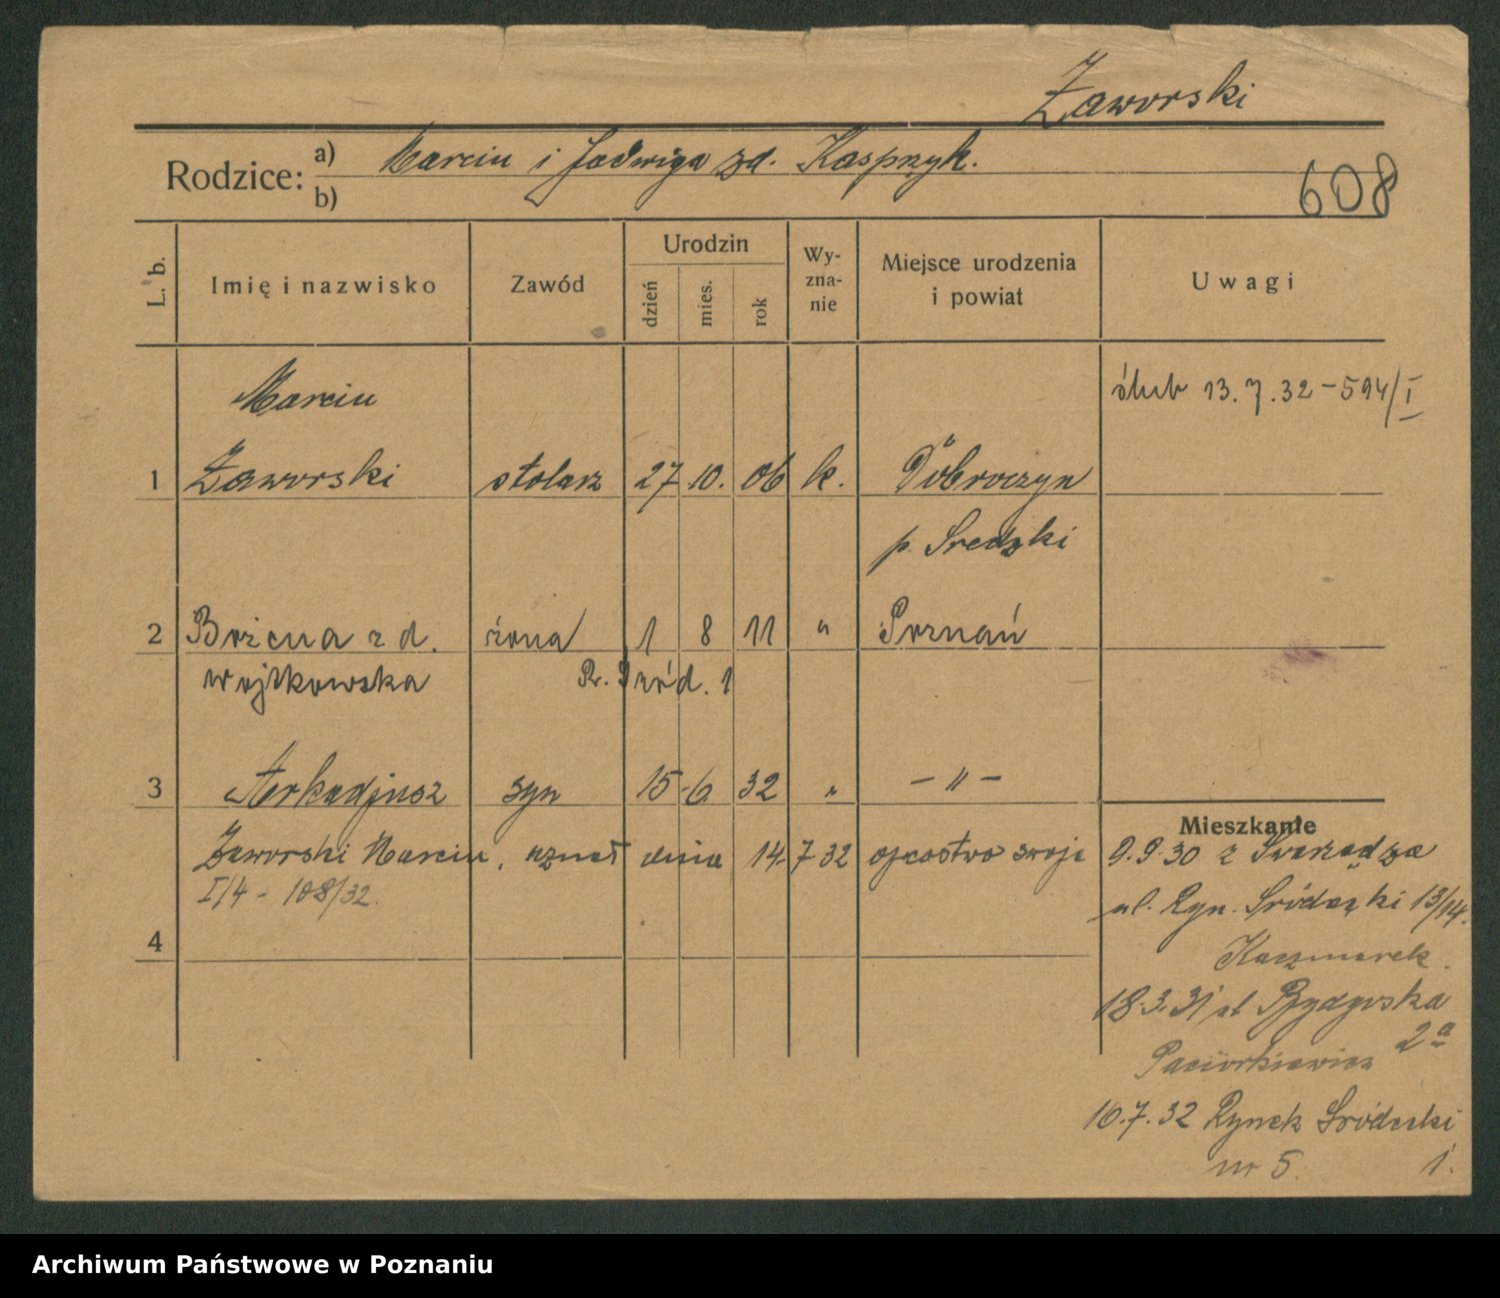 Zaworski
Rodzice: a) Marcin i Jadwiga zd. Kasprzyk.
b)
608
L. b. Imię i nazwisko Zawód Urodzin dzień mies. rok Wyznanie Miejsce urodzenia i powiat Uwagi
Marcin ślub 13.7.32 – 594/I
1 Zaworski stolarz 27 10. 06 k. Dobroczyn
p. Sredzki
2 Bożena zd. żona 1 8 11 " Poznań
Wojtkowska Śród. 1
3 Arkadjusz syn 15 6 32 " – " –
Mieszkanie
Zaworski Marcin, uznał dnia 14 7 32 ojcostwo swoje 9.9.30 z Swarzędza
I/4 – 108/32. ul. Ryn. Śródecki 13/14.
4 Kaczmarek.
18.3.31 ul Bydgoska
2a
Paciorkiewicz
16.7.32 Rynek Śródecki
nr 5. 1.
Archiwum Państwowe w Poznaniu